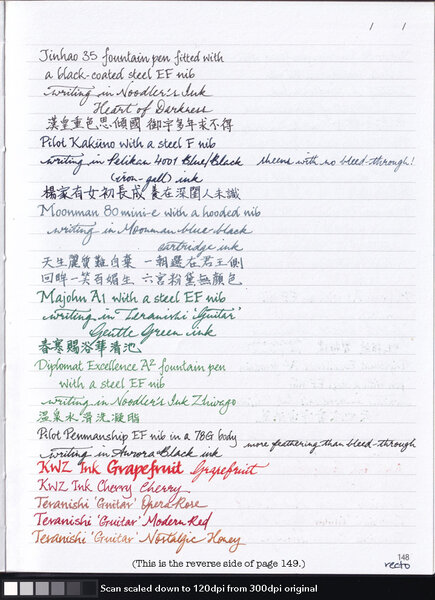 / /
Jinhao 35 fountain pen fitted with
a black-coated steel EF nib
writing in Noodler's Ink
Heart of Darkness
漢皇重色思傾國 御宇多年求不得
Pilot Kakuno with a steel F nib
writing in Pelikan 4001 Blue/Black sheens with no bleed-through!
(iron-gall) ink
楊家有女初長成 養在深閨人未識
Moonman 80 mini-e with a hooded nib
writing in Moonman blue-black
cartridge ink
天生麗質難自棄 一朝選在君王側
回眸一笑百媚生 六宮粉黛無顏色
Majohn A1 with a steel EF nib
writing in Teranishi 'Guitar'
Gentle Green ink
春寒賜浴華清池
Diplomat Excellence A² fountain pen
with a steel EF nib
writing in Noodler's Ink Zhivago
溫泉水滑洗凝脂
Pilot Penmanship EF nib in a 78G body more feathering than bleed-through
writing in Aurora Black ink
KWZ Ink Grapefruit Grapefruit
KWZ Ink Cherry Cherry
Teranishi 'Guitar' Opera Rose
Teranishi 'Guitar' Modern Red
Teranishi 'Guitar' Nostalgic Honey
148
recto
(This is the reverse side of page 149.)
Scan scaled down to 120dpi from 300dpi original